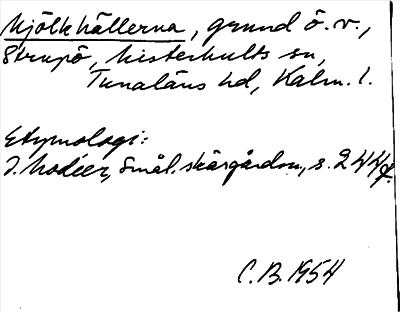 Mjölkhällerna, grund ö. v.,
Strupö, Misterhults sn,
Tunaläns hd, Kalm. l.
Etymologi:
I. Modéer, Smål. skärgården, s. 244 f.
C. B. 1954